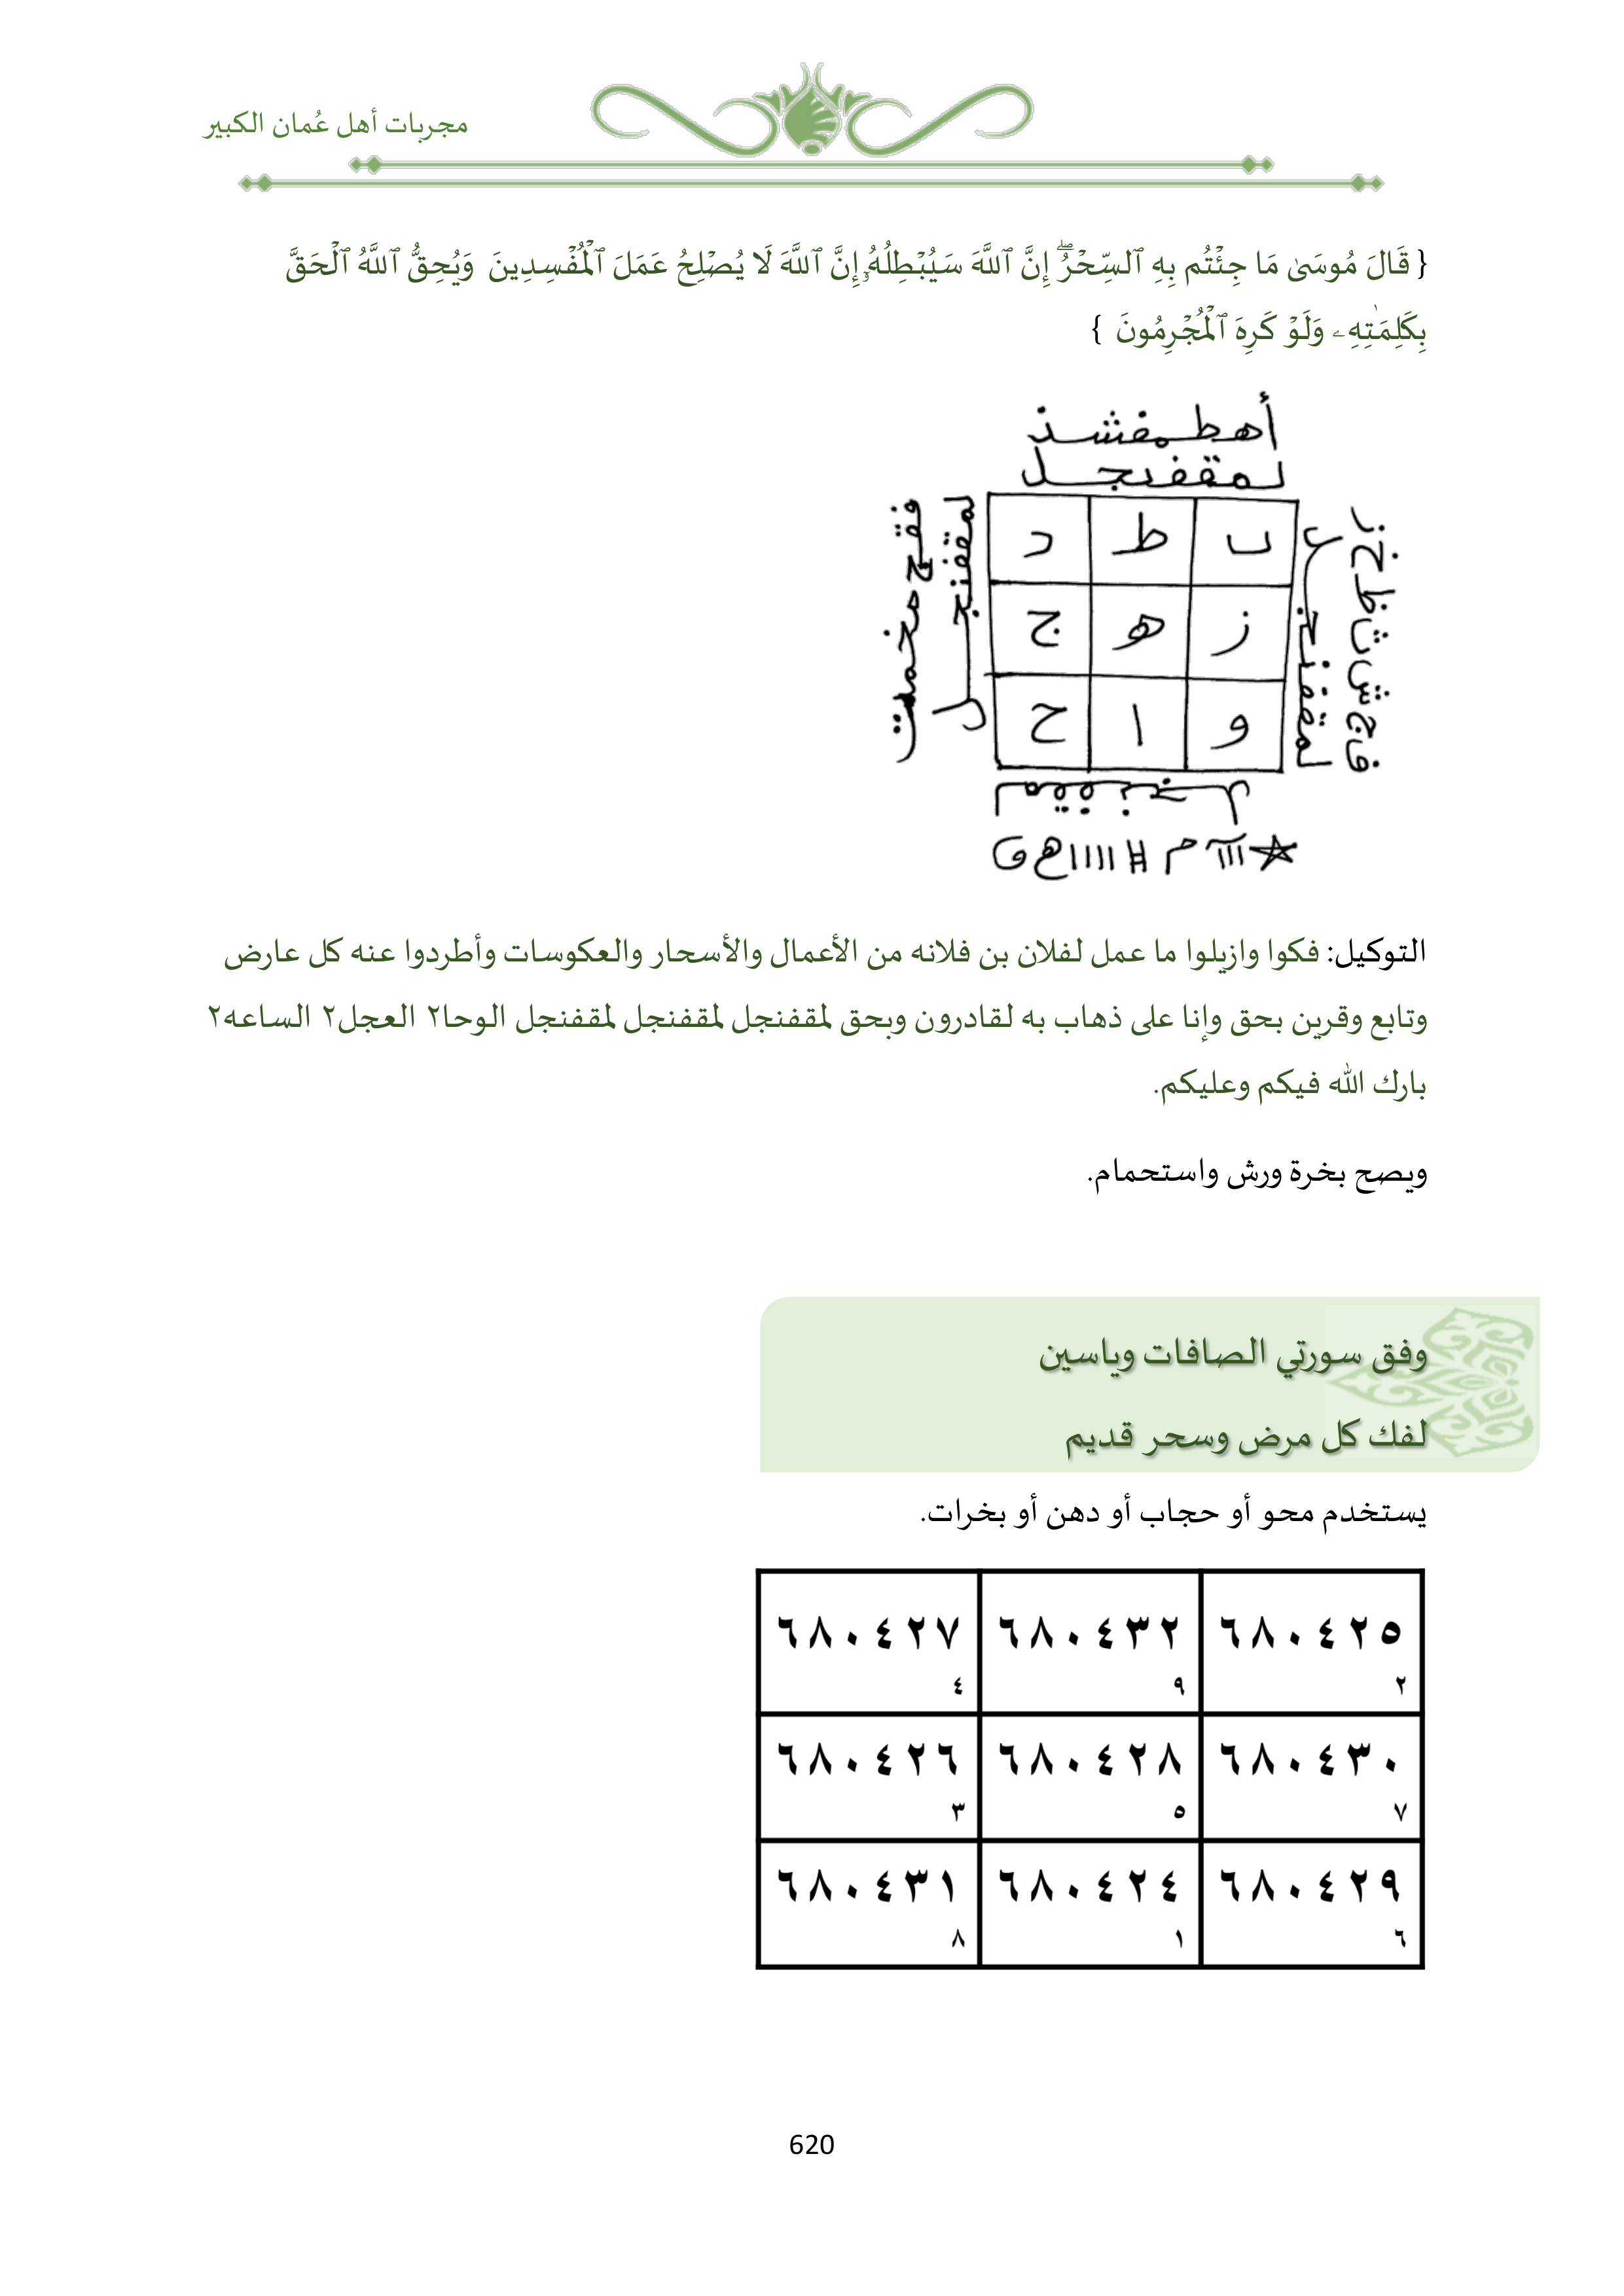 مجربات أهل عُمان الكبير
{ قَالَ مُوسَىٰ مَا جِئْتُم بِهِ ٱلسِّحْرُ ۖ إِنَّ ٱللَّهَ سَيُبْطِلُهُۥٓ إِنَّ ٱللَّهَ لَا يُصْلِحُ عَمَلَ ٱلْمُفْسِدِينَ وَيُحِقُّ ٱللَّهُ ٱلْحَقَّ
بِكَلِمَٰتِهِۦ وَلَوْ كَرِهَ ٱلْمُجْرِمُونَ }
أهطمفشذ
لمقفنجل
لمقفنجل
لمقفنجل
ب ط د
ز ه ج
و ا ح
لمقفنجل
التوكيل: فكوا وازيلوا ما عمل لفلان بن فلانه من الأعمال والأسحار والعكوسات وأطردوا عنه كل عارض
وتابع وقرين بحق وإنا على ذهاب به لقادرون وبحق لمقفنجل لمقفنجل لمقفنجل الوحا٢ العجل٢ الساعه٢
بارك الله فيكم وعليكم.
ويصح بخرة ورش واستحمام.
وفق سورتي الصافات وياسين
لفك كل مرض وسحر قديم
يستخدم محو أو حجاب أو دهن أو بخرات.
٦٨٠٤٢٥ ٦٨٠٤٣٢ ٦٨٠٤٢٧
٢ ٩ ٤
٦٨٠٤٣٠ ٦٨٠٤٢٨ ٦٨٠٤٢٦
٧ ٥ ٣
٦٨٠٤٢٩ ٦٨٠٤٢٤ ٦٨٠٤٣١
٦ ١ ٨
620